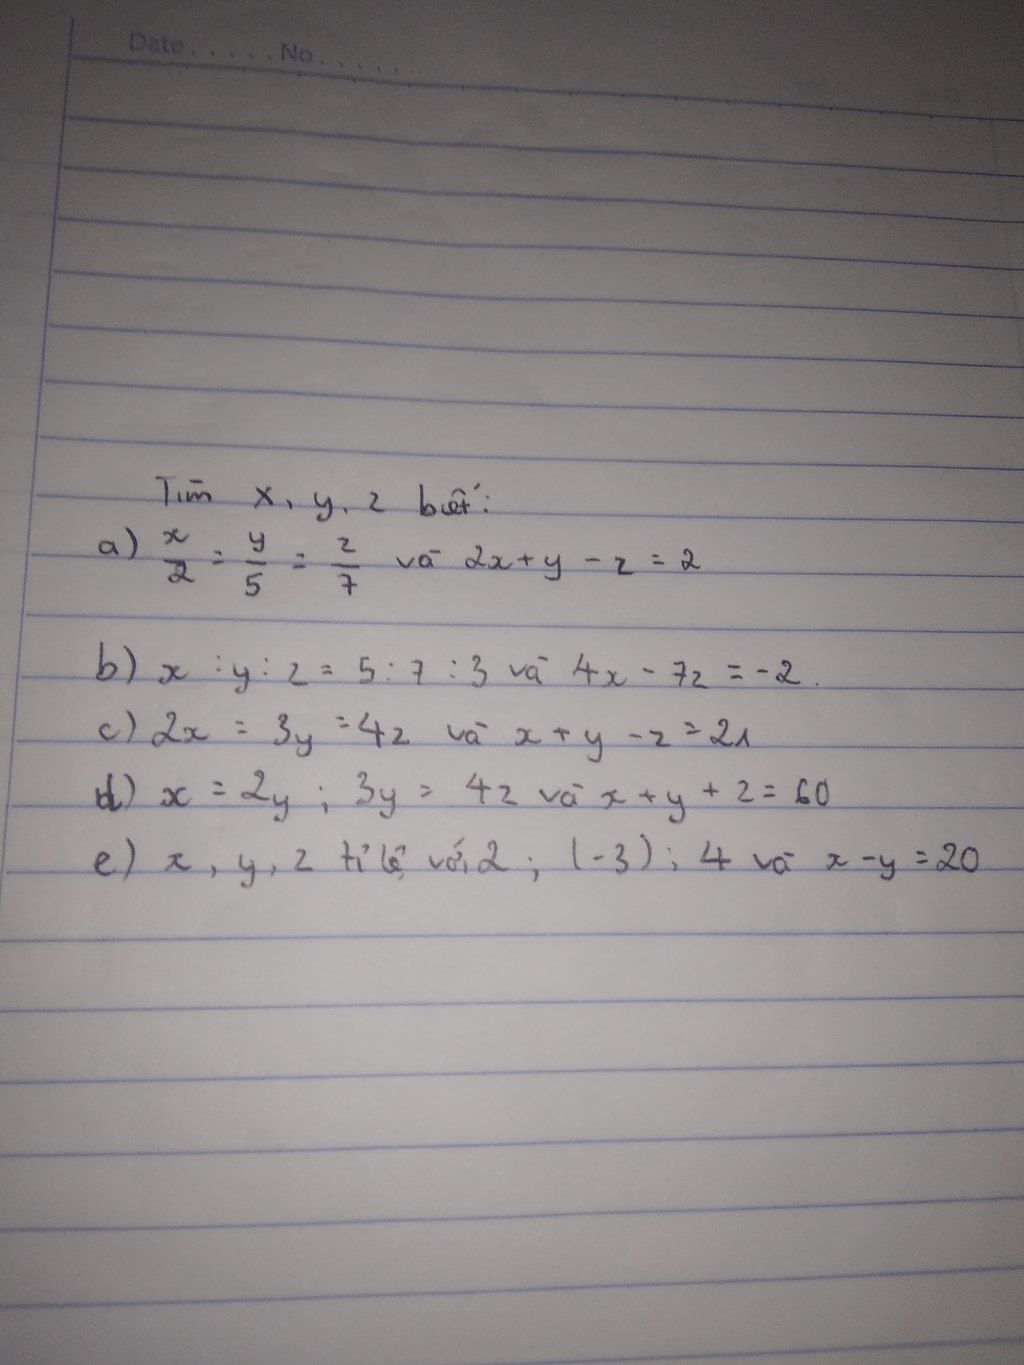 Date.....No.....
Tìm x, y, z biết:
a) x/2 = y/5 = z/7 và 2x+y-z=2
b) x:y:z = 5:7:3 và 4x-7z=-2.
c) 2x = 3y = 4z và x+y-z=21
d) x = 2y; 3y = 4z và x+y+z=60
e) x, y, z tỉ lệ với 2; (-3); 4 và x-y=20